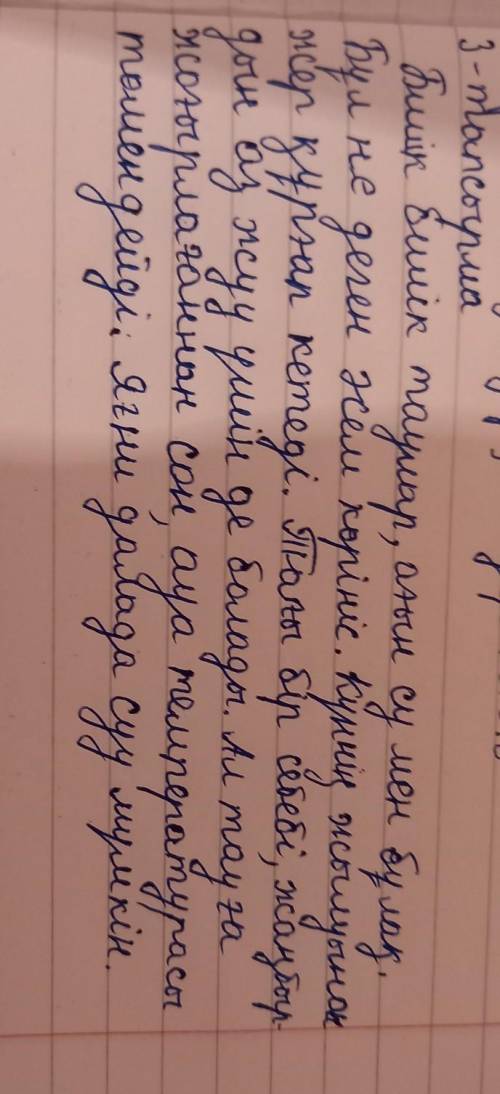 3-тапсырма
Биік биік таулар, ағын су мен бұлақ.
Бұл не деген әсем көрініс. Күннің жылуынан
жер құрғап кетеді. Тағы бір себебі, жаңбыр-
дың аз жауу үшін де болады. Ал тауға
жоғырлағаннан сон, ауа температурасы
төмендейді. Яғни далада суу мүмкін.